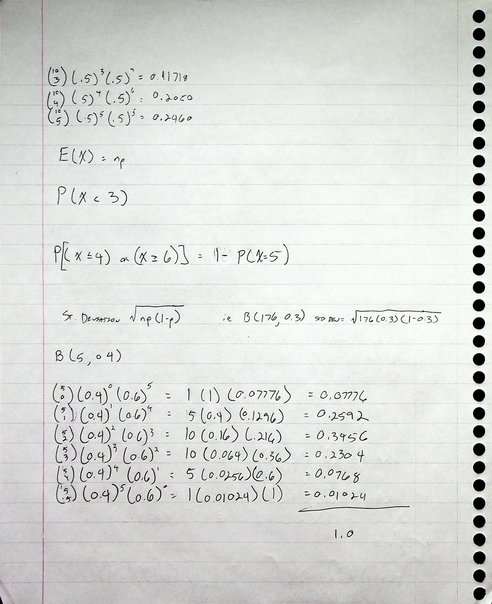 (10 3) (.5)^3 (.5)^7 = 0.11718
(10 4) (.5)^4 (.5)^6 = 0.2050
(10 5) (.5)^5 (.5)^5 = 0.2460
E(X) = np
P(X < 3)
P[(X ≤ 4) or (X ≥ 6)] = 1 - P(X=5)
St. Deviation √np(1-p) ie B(176, 0.3) STD DEV = √176(0.3)(1-0.3)
B(5, 04)
(5 0) (0.4)^0 (0.6)^5 = 1 (1) (0.07776) = 0.07776
(5 1) (0.4)^1 (0.6)^4 = 5 (0.4) (0.1296) = 0.2592
(5 2) (0.4)^2 (0.6)^3 = 10 (0.16) (.216) = 0.3456
(5 3) (0.4)^3 (0.6)^2 = 10 (0.064) (0.36) = 0.2304
(5 4) (0.4)^4 (0.6)^1 = 5 (0.0256) (0.6) = 0.0768
(5 5) (0.4)^5 (0.6)^0 = 1 (0.01024) (1) = 0.01024
1.0